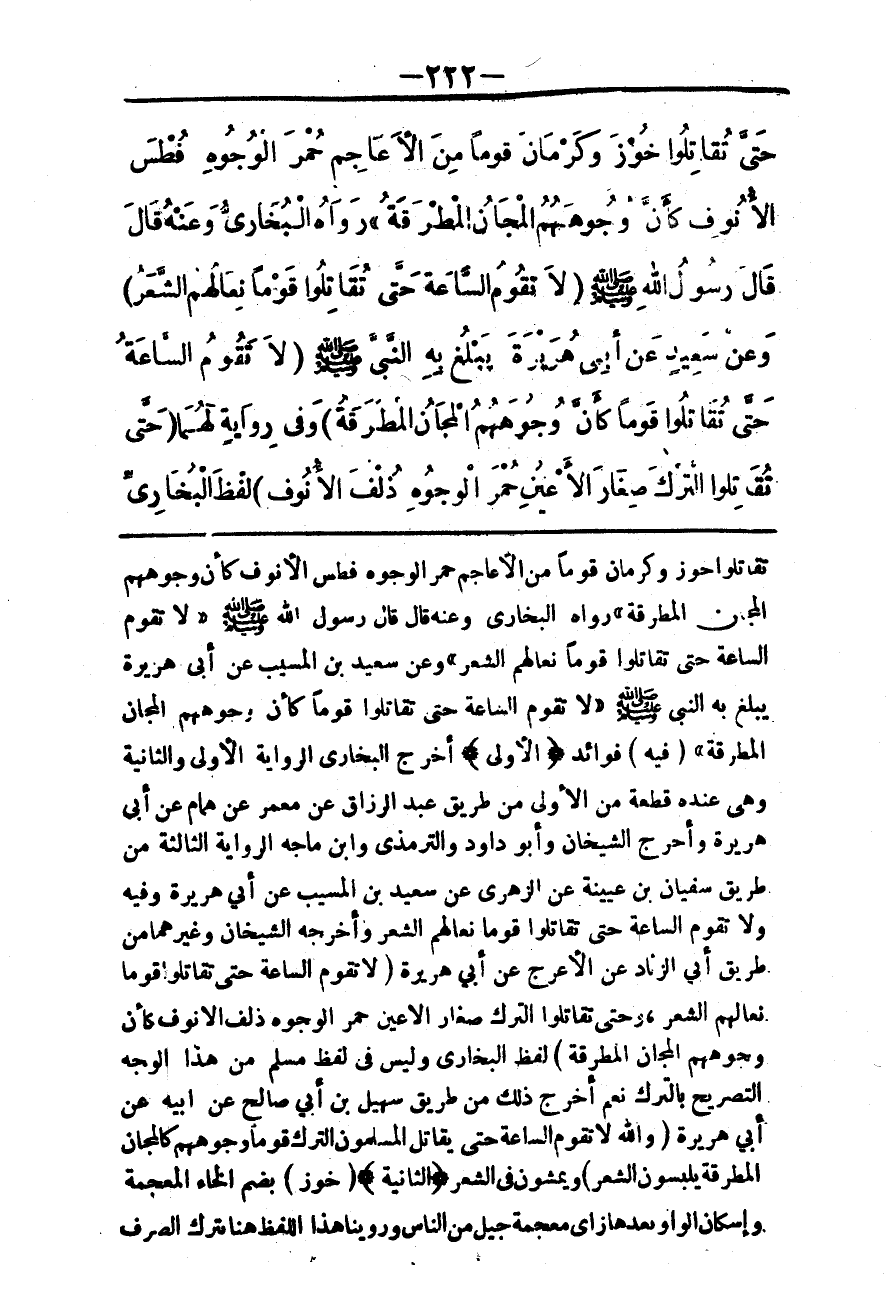 —٢٢٢—
حَتَّى تُقَاتِلُوا خُوْزَ وَكَرْمَانَ قوماً مِنَ الْأَعَاجِمِ حُمْرَ الْوُجُوهِ فُطْسَ
الأُنُوفِ كَأَنَّ وُجُوهَهُمُ الْمْجَانُ الْمُطْرَقَةُ» رَوَاهُ الْبُخَارِىُّ وَعَنْهُ قَالَ
قَالَ رَسُولُ اللهِ ﷺ (لاَ تَقُومُ السَّاعَة حَتَّى تُقَاتِلُوا قَوْماً نِعَالُهُمُ الشَّعَرُ)
وَعن سَعِيدٍ عَن أَبِى هُرَيْرَةَ يَبْلُغُ بِهِ النَّبِىَّ ﷺ (لاَ تَقُومُ السَّاعَةُ
حَتَّى تُقَاتِلُوا قَوماً كَأَنَّ وُجُوهَهُمُ الْمجَانُ الْمُطْرَقَةُ) وَفى رِوايَةٍ لَهُمَا (حَتَّى
تُقَاتِلُوا التُّرْكَ صِغَارَ الأَعْيُنِ حُمْرَ الْوجُوهِ ذُلْفَ الأُنُوف) لفظَ الْبُخَارِىِّ
تقاتلوا خوز وكرمان قوماً من الأعاجم حمر الوجوه فطس الأنوف كأن وجوههم
المجان المطرقة» رواه البخارى وعنه قال قال رسول الله ﷺ «لا تقوم
الساعة حتى تقاتلوا قوماً نعالهم الشعر» وعن سعيد بن المسيب عن أبى هريرة
يبلغ به النبى ﷺ «لا تقوم الساعة حتى تقاتلوا قوماً كأن وجوههم المجان
المطرقة» (فيه) فوائد ﴿الأولى﴾ أخرج البخارى الرواية الأولى والثانية
وهى عنده قطعة من الأولى من طريق عبد الرزاق عن معمر عن همام عن أبى
هريرة وأخرج الشيخان وأبو داود والترمذى وابن ماجه الرواية الثالثة من
طريق سفيان بن عيينة عن الزهرى عن سعيد بن المسيب عن أبي هريرة وفيه
ولا تقوم الساعة حتى تقاتلوا قوما نعالهم الشعر وأخرجه الشيخان وغيرهما من
طريق أبي الزناد عن الأعرج عن أبي هريرة (لا تقوم الساعة حتى تقاتلوا قوما
نعالهم الشعر، وحتى تقاتلوا الترك صغار الاعين حمر الوجوه ذلف الانوف كأن
وجوههم المجان المطرقة) لفظ البخارى وليس فى لفظ مسلم من هذا الوجه
التصريح بالترك نعم أخرج ذلك من طريق سهيل بن أبي صالح عن ابيه عن
أبي هريرة (والله لا تقوم الساعة حتى يقاتل المسلمون الترك قوماً وجوههم كالمجان
المطرقة يلبسون الشعر) ويمشون فى الشعر ﴿الثانية﴾ (خوز) بضم الخاء المعجمة
وإسكان الواو بعدها زاى معجمة جيل من الناس وروينا هذا اللفظ هنا بترك الصرف